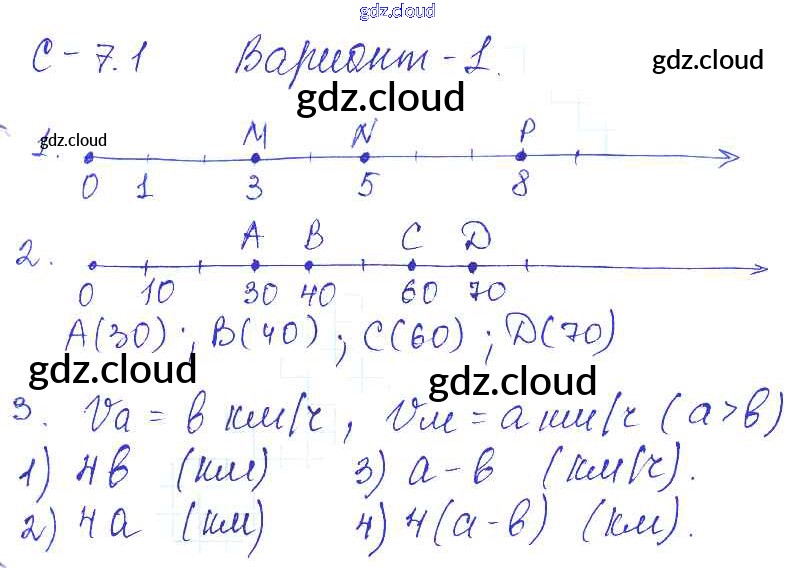 gdz.cloud
С-7.1 Вариант-1. gdz.cloud
gdz.cloud
1. gdz.cloud M N P
0 1 3 5 8
2. A B C D
0 10 30 40 60 70
A(30); B(40); C(60); D(70)
gdz.cloud gdz.cloud
3. Vа = в км/ч, Vм = а км/ч (а>в)
1) 4в (км) 3) а-в (км/ч).
2) 4а (км) 4) 4(а-в) (км).